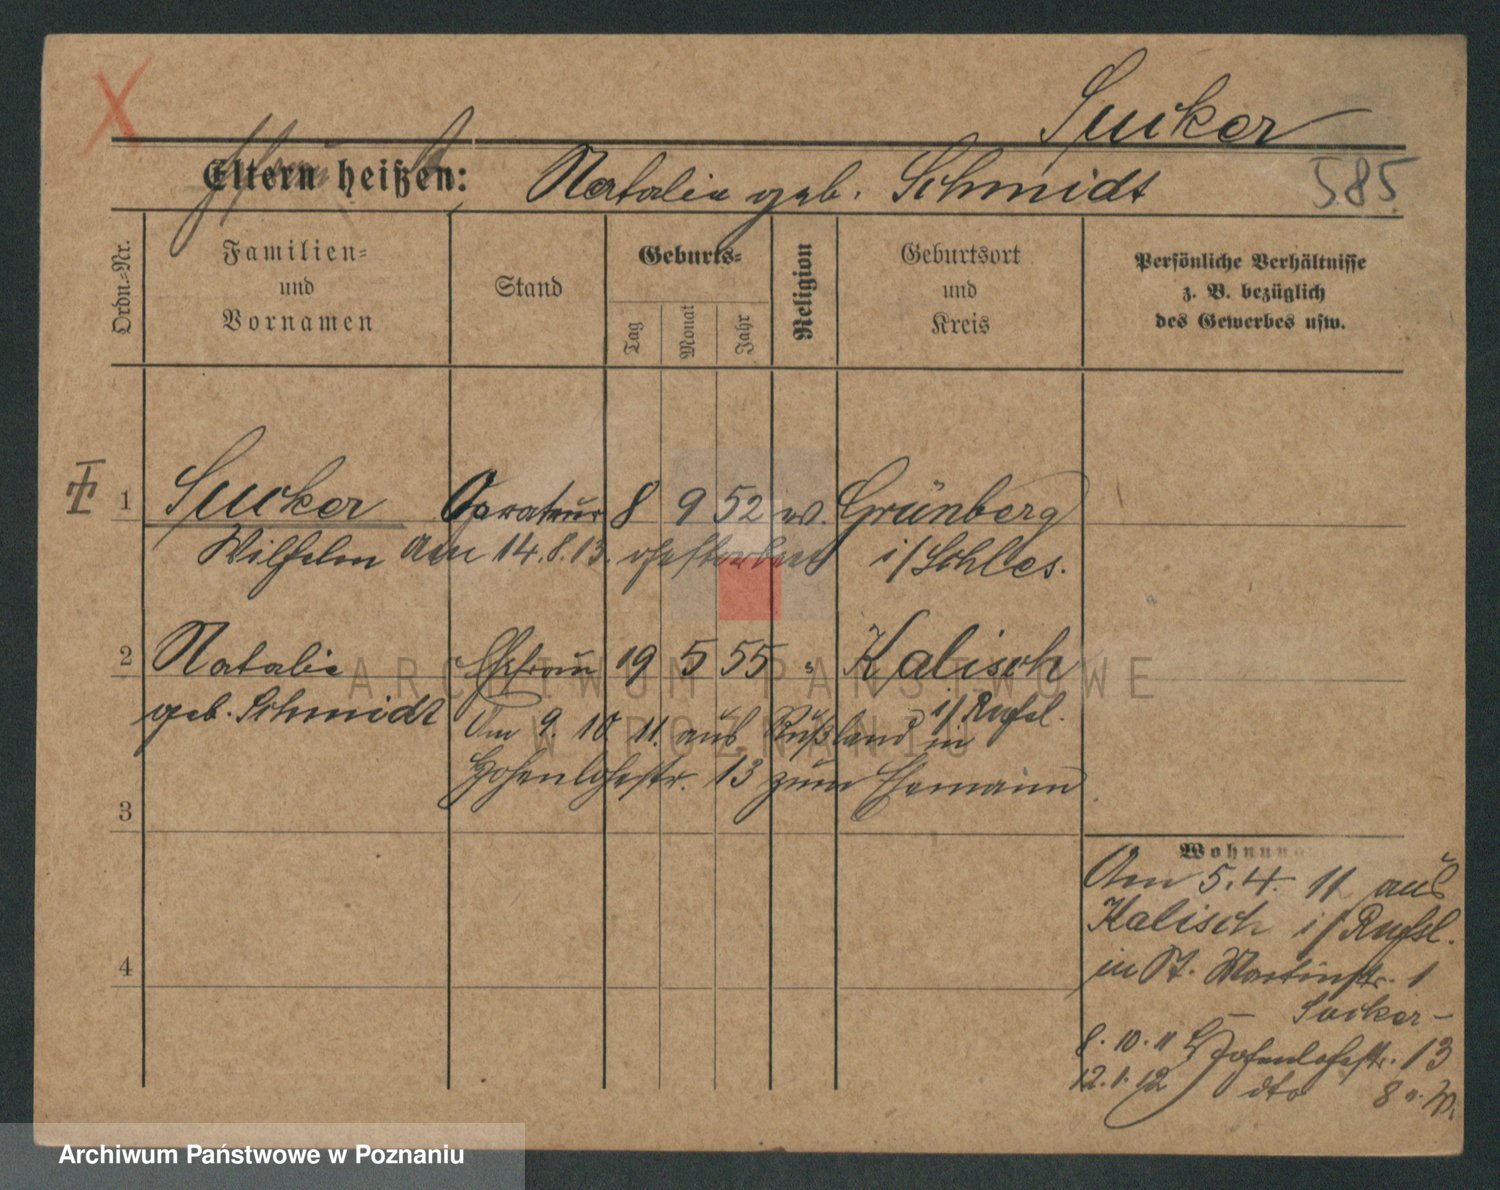 Sucker
Eltern heißen: Natalie geb. Schmidt 585
Ordn.-Nr.
Familien-
und
Vornamen
Stand
Geburts-
Tag
Monat
Jahr
Religion
Geburtsort
und
Kreis
Persönliche Verhältnisse
z. B. bezüglich
des Gewerbes usw.
1 Sucker 8 9 52 ev. Grünberg
Wilhelm Am 14.8.13. i/Schles.
2 Natalie Ehefrau 19 5 55 " Kalisch
geb. Schmidt i/Rußl.
Am 9. 10 11. aus Rußland in
Hohenlohestr. 13 zum Ehemann
3
Wohnung
Am 5.4. 11 aus
Kalisch i/Rußl.
in St. Martinstr. 1
Sucker -
8.10.11 Hohenlohestr. 13
12.1.12 dto 8
4
ARCHIWUM PAŃSTWOWE
W POZNANIU
Archiwum Państwowe w Poznaniu